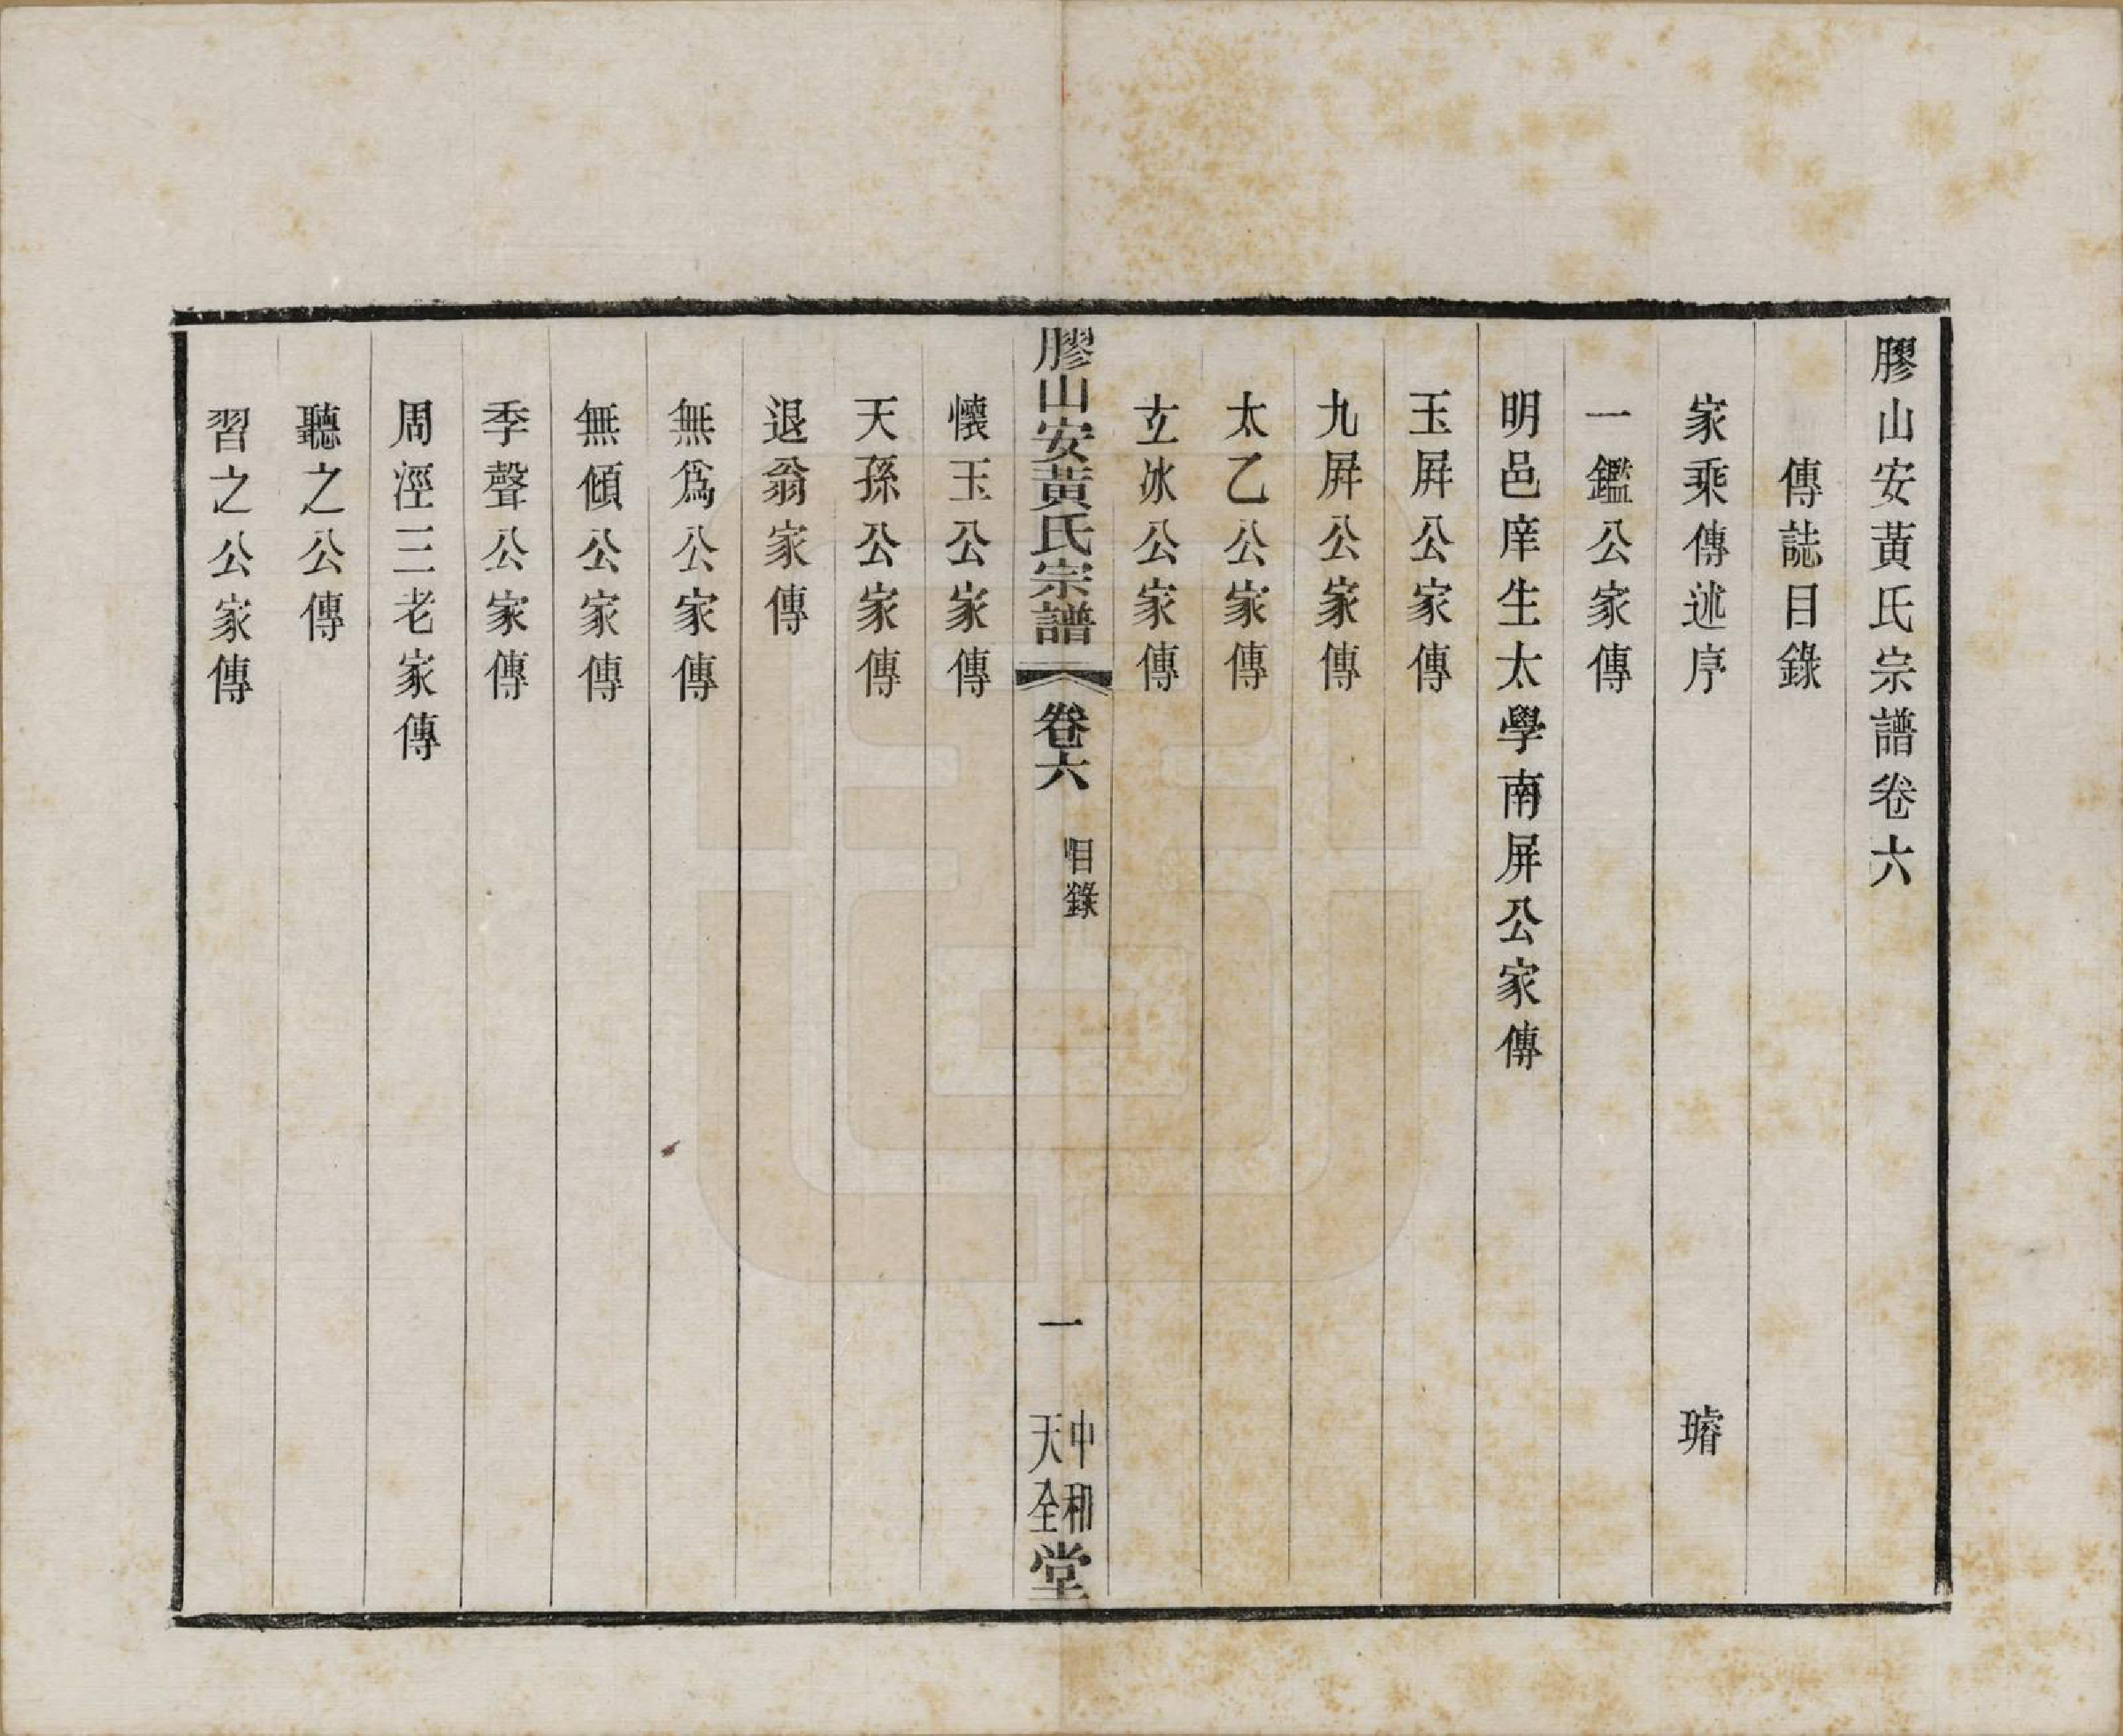 膠山安黃氏宗譜卷六
傳誌目錄
家乘傳述序　璿
一鑑公家傳
明邑庠生太學南屏公家傳
玉屛公家傳
九屛公家傳
太乙公家傳
立冰公家傳
膠山安黃氏宗譜　卷六　目錄　一　中和天全堂
懷玉公家傳
天孫公家傳
退翁家傳
無爲公家傳
無傾公家傳
季聲公家傳
周涇三老家傳
聽之公傳
習之公家傳